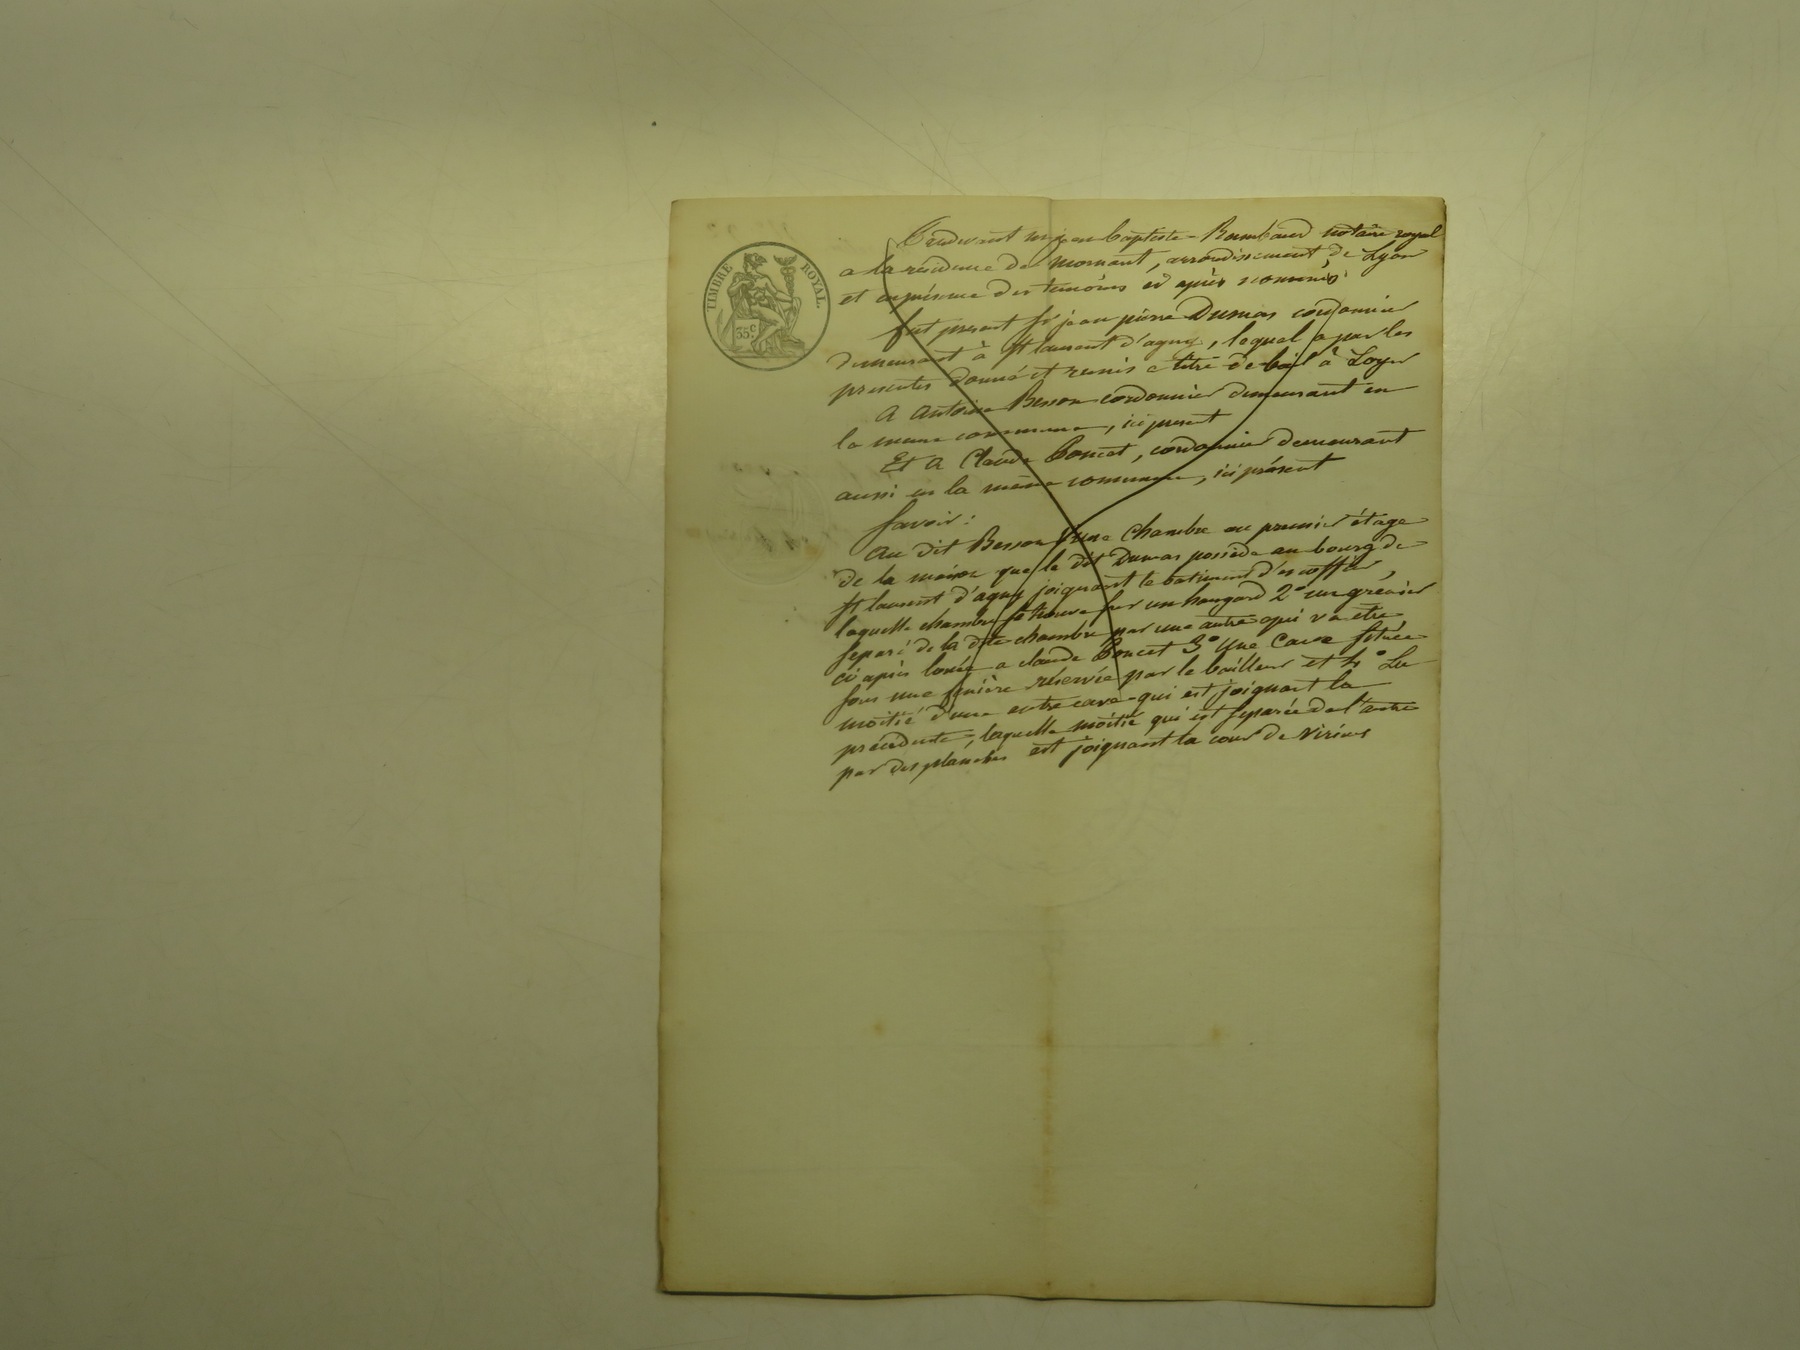 TIMBRE ROYAL.
35 c
Pardevant me jean baptiste Rambaud notaire royal
a la résidence de Mornant, arrondissement de Lyon
et en présence des temoins ci après nommés
fut present sr jean pierre Dumas cordonnier
demeurant à st laurent d'agny, lequel a par les
presentes donné et remis a titre de bail à Loyer
A Antoine Besson cordonnier demeurant en
la meme commune, ici present
Et A Claude Poncet, cordonnier demeurant
aussi en la même commune, ici présent
savoir :
Au dit Besson une Chambre au premier étage
de la maison que le dit Dumas possède au bourg de
st laurent d'agny joignant le batiment d'escoffier,
laquelle chambre se trouve sur un hangard 2° un grénier
separé de la dite chambre par une autre qui va etre
ci après louée a claude Poncet 3° Une Cave située
sous une fenière réservée par le bailleur et 4° La
moitié d'une autre cave qui est joignant la
précédente, laquelle moitié qui est separée de l'autre
par des planches est joignant la cour de